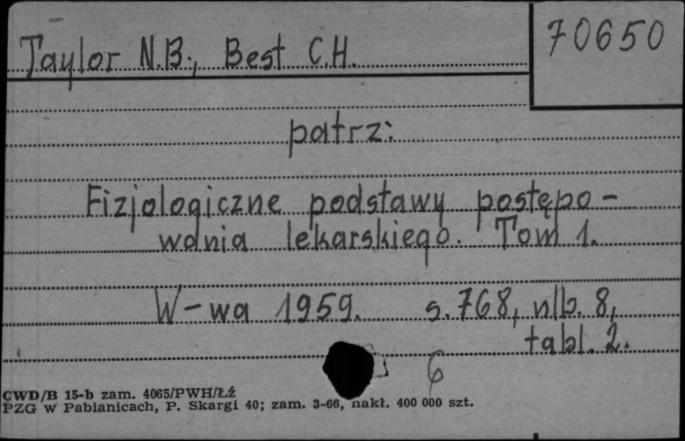 70650
Taylor N.B., Best C.H.
patrz:
Fizjologiczne podstawy postępo-
wania lekarskiego. Tom 1.
W-wa 1959. s. 768, nlb. 8,
tabl. 2.
6
CWD/B 15-b zam. 4065/PWH/ŁŹ
PZG w Pabianicach, P. Skargi 40; zam. 3-66, nakł. 400 000 szt.